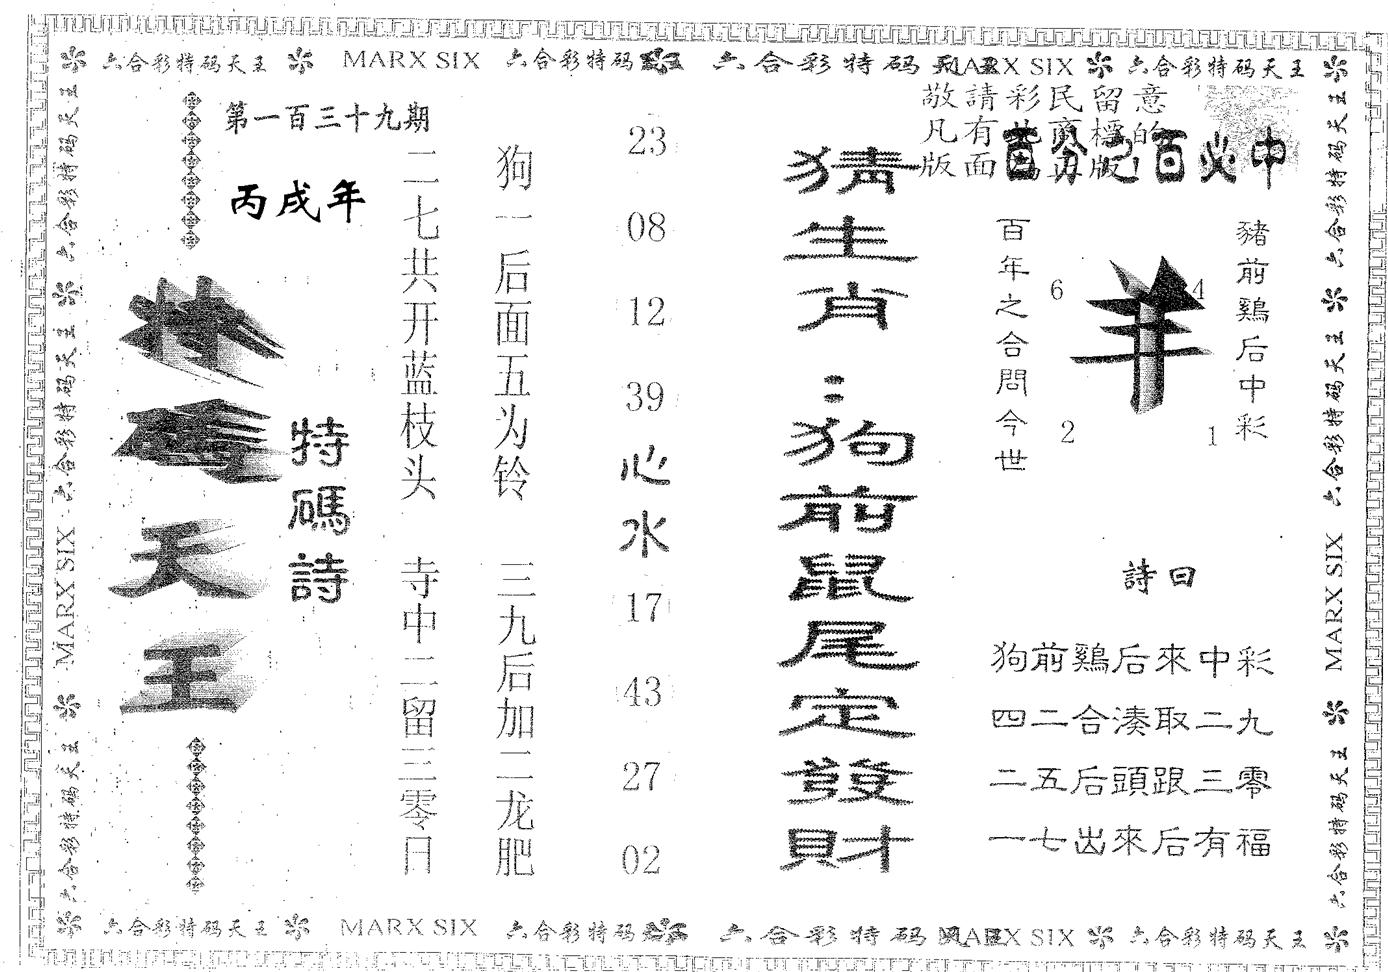 六合彩特码天王 MARX SIX 六合彩特码 六合彩特码天王 MARX SIX 六合彩特码天王
第一百三十九期
丙戌年
特碼天王
特碼詩
二七共开蓝枝头 寺中二留三零日
狗一后面五为铃 三九后加二龙肥
23
08
12
39
心水
17
43
27
02
猜生肖：狗前鼠尾定發財
敬請彩民留意
凡有此商標的
版面為正版!
百分之百必中
百年之合問今世
6
4
羊
2
1
豬前鷄后中彩
詩曰
狗前鷄后來中彩
四二合湊取二九
二五后頭跟三零
一七出來后有福
六合彩特码天王
六合彩特码天王
六合彩特码天王
MARX SIX
六合彩特码天王
六合彩特码天王
六合彩特码天王
MARX SIX
六合彩特码天王
六合彩特码天王 MARX SIX 六合彩特码 六合彩特码 MARX SIX 六合彩特码天王